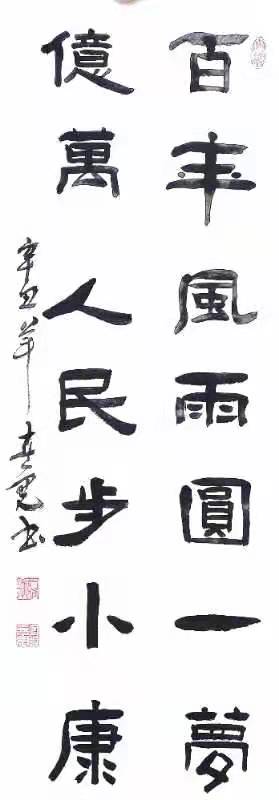 百年風雨圓一夢
億萬人民步小康
辛丑年
書